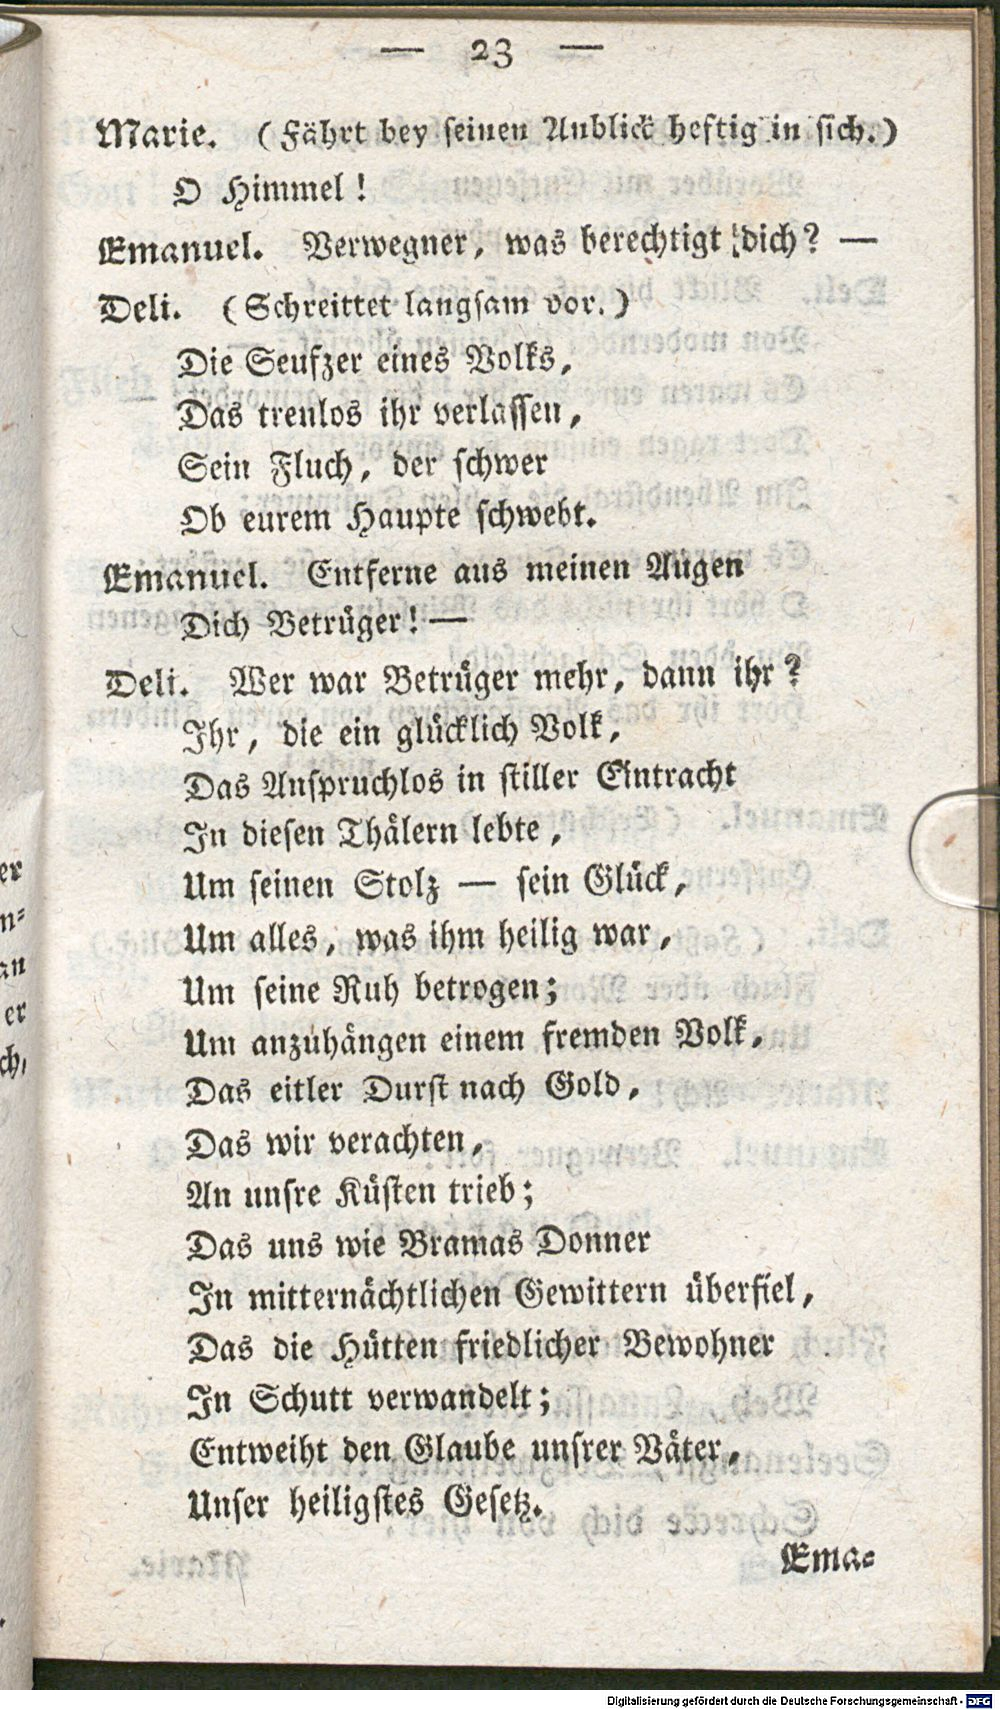 — 23 —
Marie. (Fährt bey seinen Anblick heftig in sich.)
O Himmel!
Emanuel. Verwegner, was berechtigt dich? —
Deli. (Schreittet langsam vor.)
Die Seufzer eines Volks,
Das treulos ihr verlassen,
Sein Fluch, der schwer
Ob eurem Haupte schwebt.
Emanuel. Entferne aus meinen Augen
Dich Betrüger! —
Deli. Wer war Betrüger mehr, dann ihr?
Ihr, die ein glücklich Volk,
Das Anspruchlos in stiller Eintracht
In diesen Thälern lebte,
Um seinen Stolz — sein Glück,
Um alles, was ihm heilig war,
Um seine Ruh betrogen;
Um anzuhängen einem fremden Volk,
Das eitler Durst nach Gold,
Das wir verachten,
An unsre Küsten trieb;
Das uns wie Bramas Donner
In mitternächtlichen Gewittern überfiel,
Das die Hütten friedlicher Bewohner
In Schutt verwandelt;
Entweiht den Glaube unsrer Väter,
Unser heiligstes Gesetz.
Ema-
er
n-
an
er
ch,
Digitalisierung gefördert durch die Deutsche Forschungsgemeinschaft - DFG